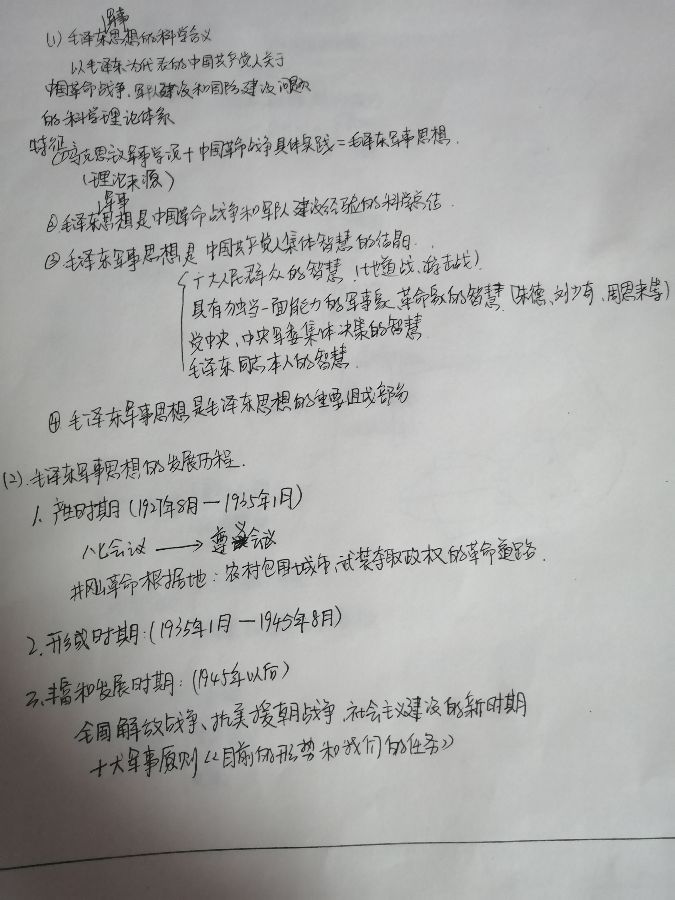 (1) 毛泽东军事思想的科学含义
以毛泽东为代表的中国共产党人关于
中国革命战争、军队建设和国防建设问题
的科学理论体系
特征 ①马克思主义军事学说+中国革命战争具体实践=毛泽东军事思想.
(理论来源)
②毛泽东军事思想是中国革命战争和军队建设经验的科学总结.
③毛泽东军事思想是中国共产党人集体智慧的结晶.
广大人民群众的智慧.(地道战、游击战)
具有独当一面能力的军事家、革命家的智慧(朱德、刘少奇、周恩来等)
党中央、中央军委集体决策的智慧
毛泽东同志本人的智慧.
④毛泽东军事思想是毛泽东思想的重要组成部分
(2).毛泽东军事思想的发展历程.
1.产生时期(1927年8月—1935年1月)
八七会议→遵义会议
井冈山革命根据地:农村包围城市,武装夺取政权的革命道路.
2.形成时期:(1935年1月—1945年8月)
3.丰富和发展时期:(1945年以后)
全国解放战争、抗美援朝战争、社会主义建设的新时期
十大军事原则《目前的形势和我们的任务》